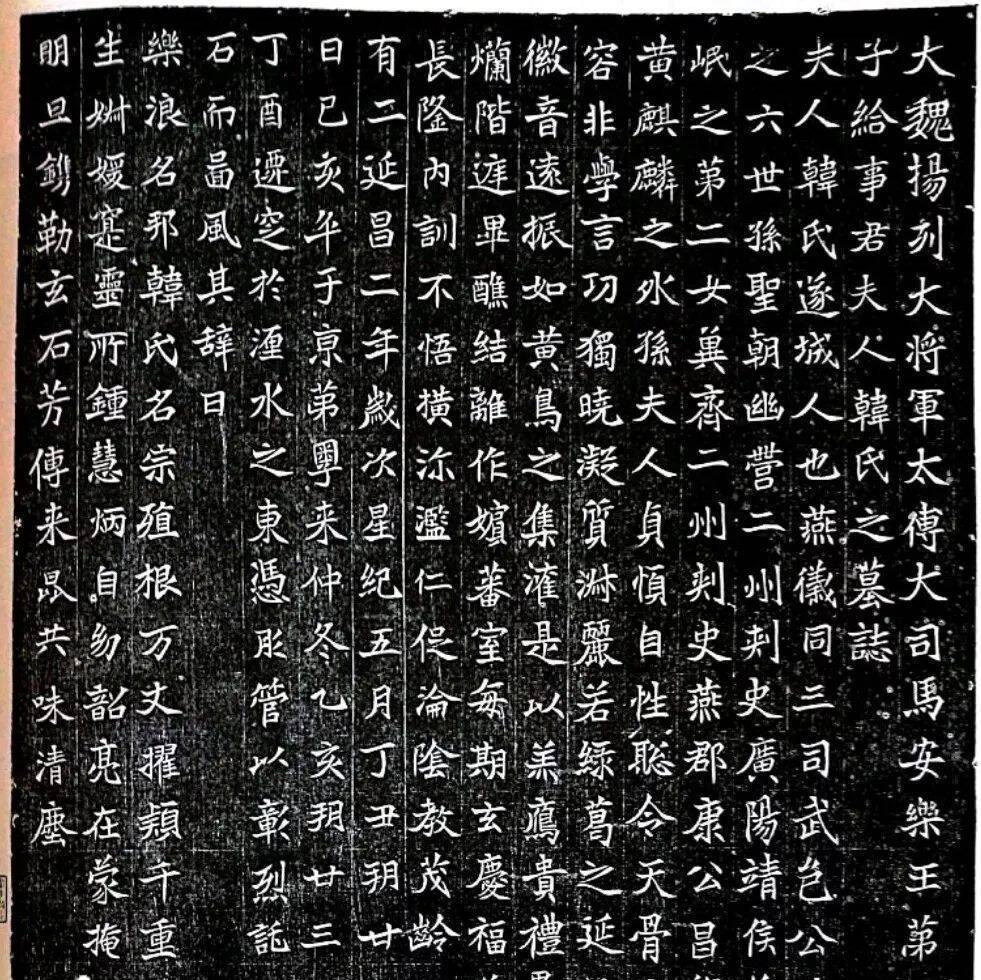 大魏揚列大將軍太傅大司馬安樂王第
子給事君夫人韓氏之墓誌
夫人韓氏遂城人也燕儀同三司武邑公
之六世孫聖朝幽營二州刾史廣陽靖侯
岷之第二女冀齊二州刾史燕郡康公昌
黄麒麟之外孫夫人貞慎自性聡令天骨
容非學言功獨曉凝質淋麗若緑葛之延
徽音遠振如黄鳥之集灌是以羔鴈貴禮
爛階遝畢醮結離作嬪蕃室每期玄慶福
長隆內訓不悟横流濫仁促淪陰教茂齡
有二延昌二年嵗次星紀五月丁丑玥廿
日己亥卒于京苐粵来仲冬乙亥玥廿三
丁酉遷窆於瀍水之東憑彤管以彰烈託
石而啚風其辞曰
樂浪名邦韓氏名宗殖根万丈擢頴千重
生姝媛寔靈所鍾慧炳自幼韶亮在蒙掩
明旦鐫勒玄石芳傳来昆共味清塵